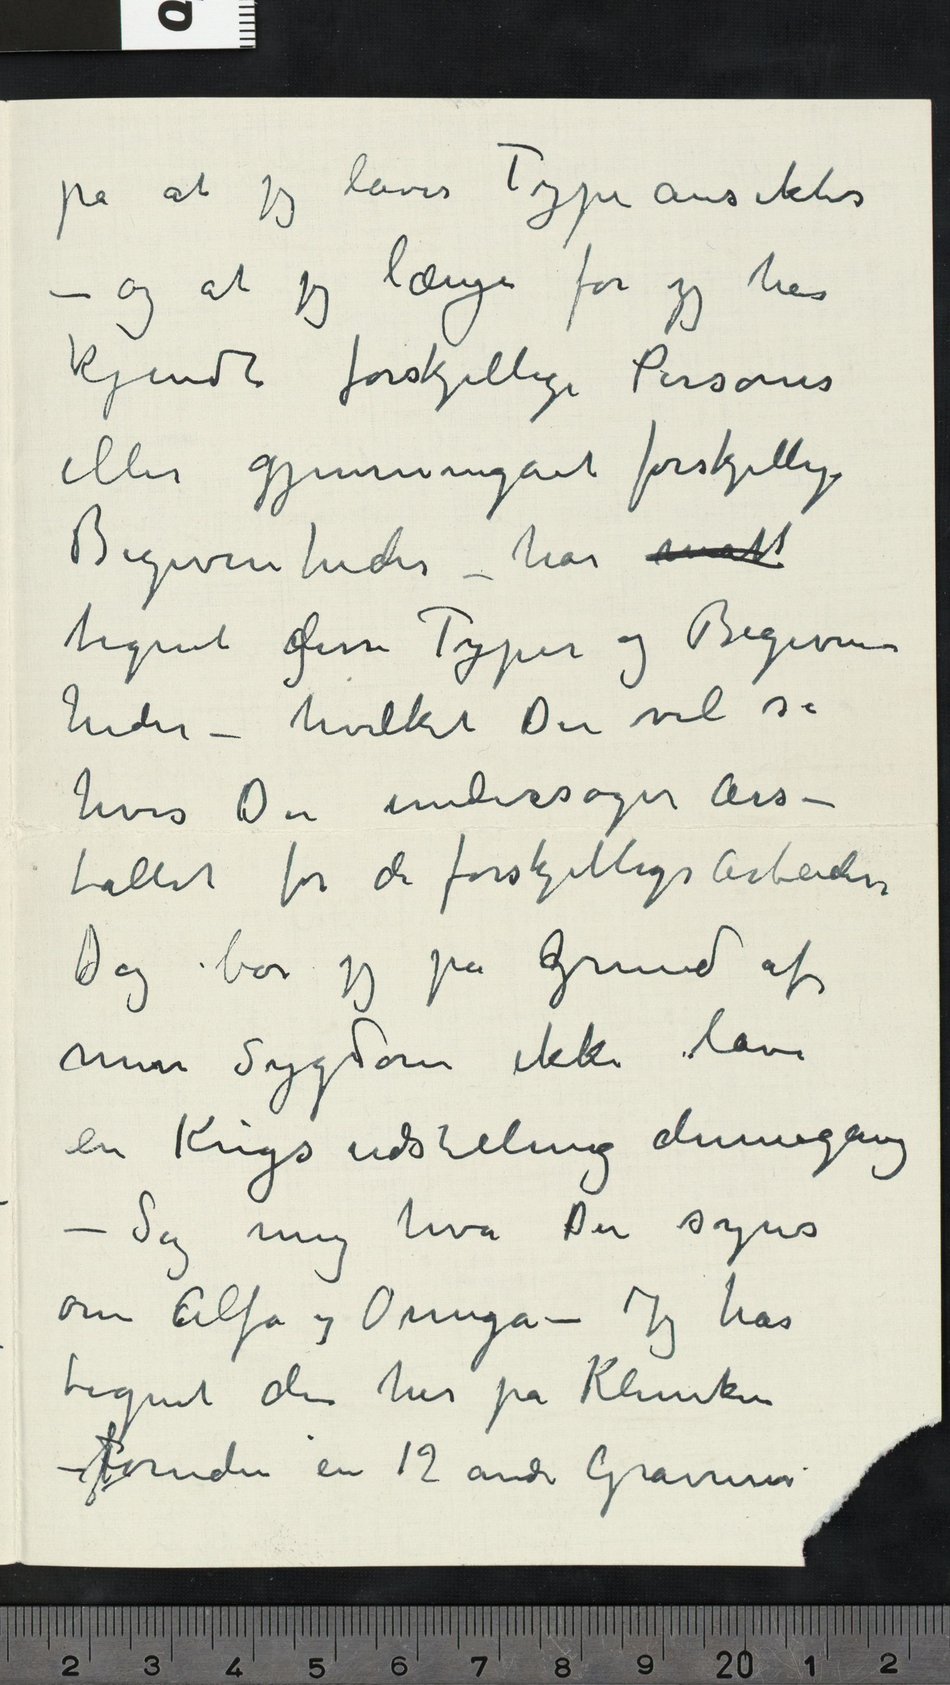 på at jeg laver Typeansikter
– og at jeg længe før jeg har
kjendt forskjellige Persones
eller gjennemgået forskjellige
Begivenheder – har malt
tegnet disse Typer og Begiven
heder – hvilket De vil se
hvis De undersøger Års–
tallet for de forskjellige Arbeider
Dog bør jeg på Grund af
min Sygdom ikke lave
en Krigsudstilling dennegang
– Sig mig hva De synes
om Alfa og Omega – Jeg har
tegnet den her på Kliniken
– foruden en 12 andre Gravurer
2 3 4 5 6 7 8 9 20 1 2